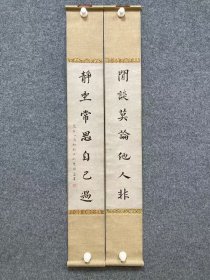 閒談莫論他人非
靜坐常思自己過